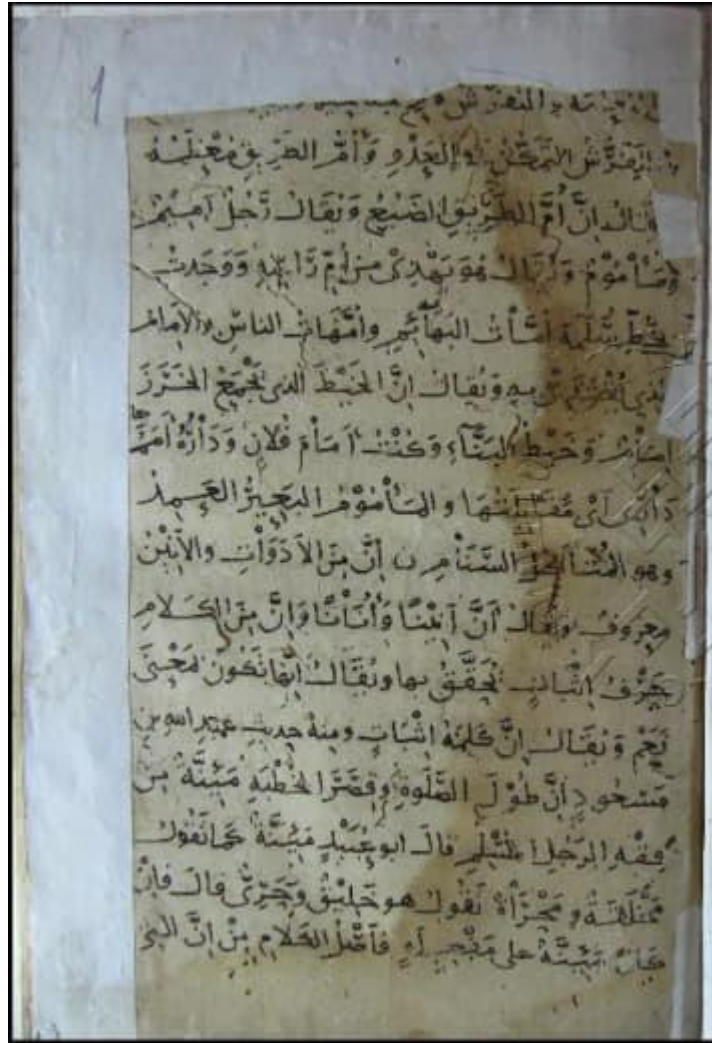 1
والمتفرش
التفرش التمكن للعدو وأم الطريق معظمه
يقال إن أم الطريق الضبع ويقال رجل أميم
ومأموم ويقال هو يهذي من أم رأسه ووجدت
بخط سلمة أمات البهائم وأمهات الناس والإمام
الذي يقتدى به ويقال إن الخيط الذي يجمع الخرز
إمام وخيط البناء وكنت أمام فلان ودارة أمم
داري أي مقابلتها والمأموم البعير العمد
وهو المتأكل السنام ن أن من الأدوات والأنين
معروف ويقال أن أنينا وأنانا وإن من الكلام
حرف إثبات تحقق بها ويقال إنها تكون بمعنى
نعم ويقال إن كلمة إثبات ومنه حديث عبد الله بن
مسعود إن طول الصلوة وقصر الخطبة مئنة من
فقه الرجل المسلم قال أبو عبيد مئنة كما تقول
مخلقة ومجرأة تقول هو خليق وحري قال فإن
كان مئنة على فأصل الكلام من إن التي